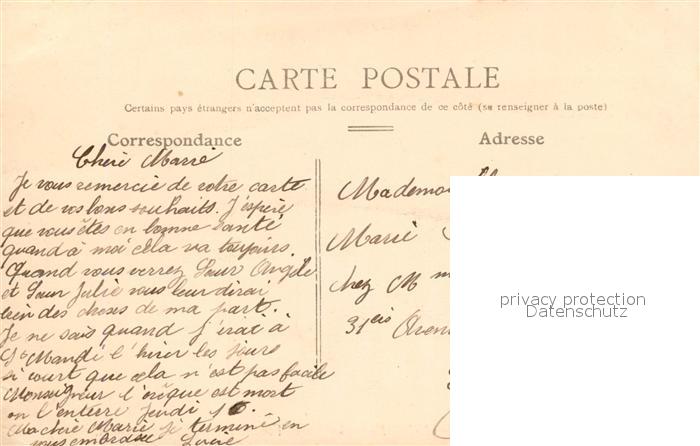 CARTE POSTALE
Certains pays étrangers n'acceptent pas la correspondance de ce côté (se renseigner à la poste)
Correspondance
Adresse
Cheré Marie
Je vous remercie de votre carte
et de vos bons souhaits. J'espère
que vous êtes en bonne santé
quand à moi cela va toujours.
Quand vous verrez Sœur Angèle
et Sœur Julie vous leur dirai
bien des choses de ma part.
Je ne sais quand j'irai à
St Mandé l'hiver les jours
si court que cela n'est pas facile
Monseigneur l'évêque est mort
on l'enterre Jeudi
Ma chère Marie je terminé en
vous embrassant
Mademoi
Marie
chez Mm
31 bis Aven
privacy protection
Datenschutz